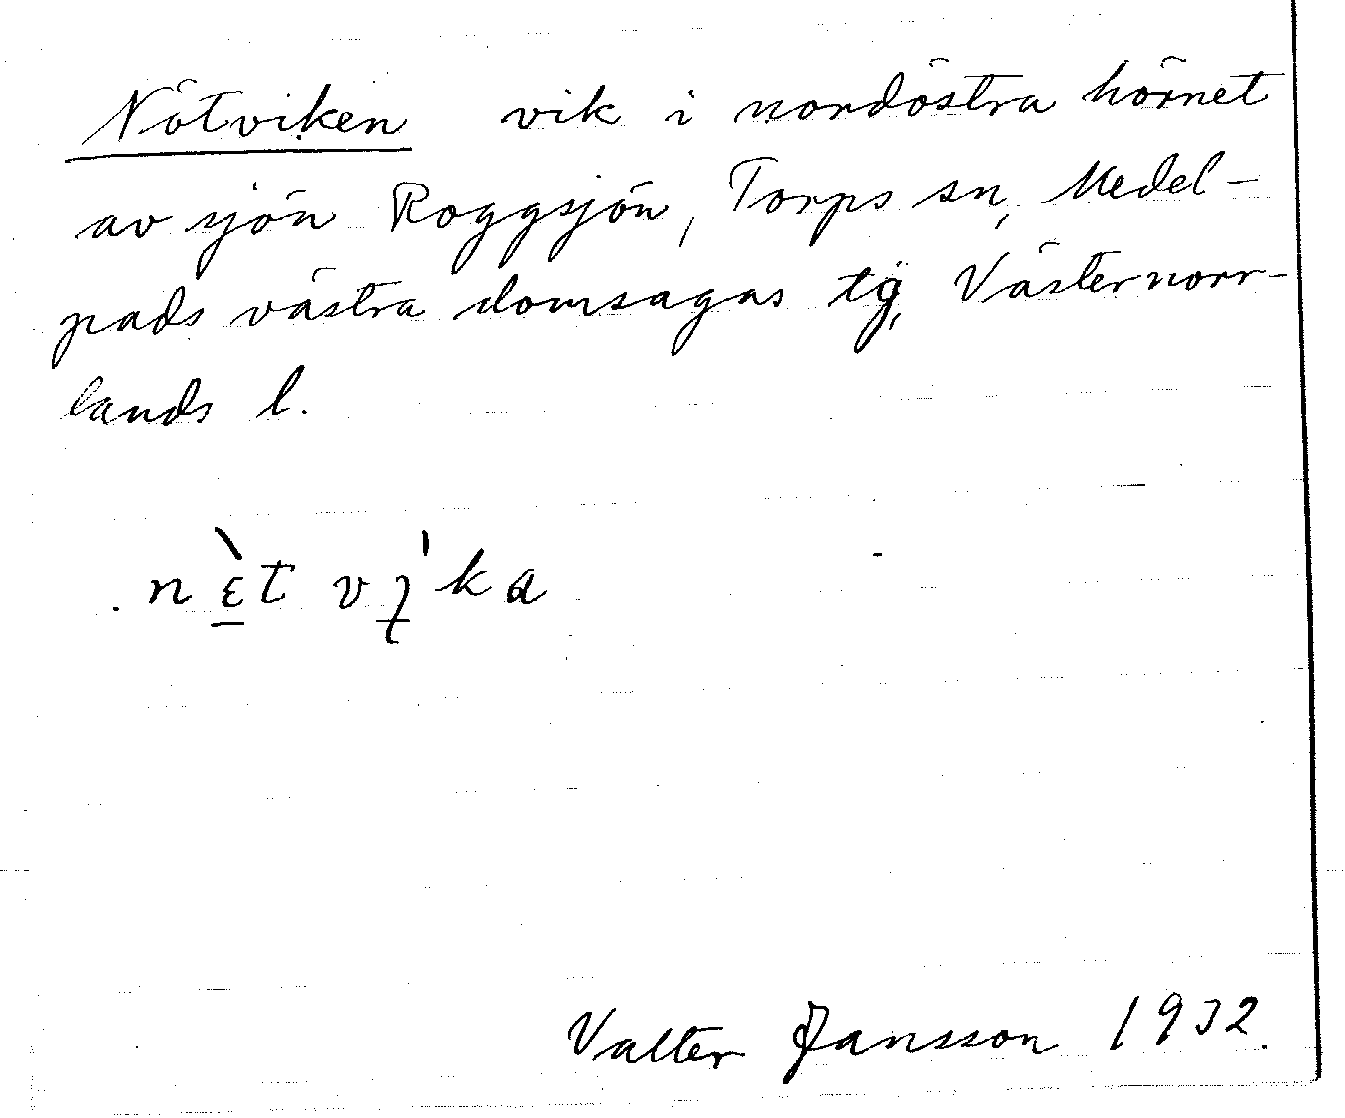 Nötviken vik i nordöstra hörnet
av sjön Roggsjön, Torps sn, Medel-
pads västra domsagas tg, Västernorr-
lands l.
nɛ̀t vı̨'ka
Valter Jansson 1932.